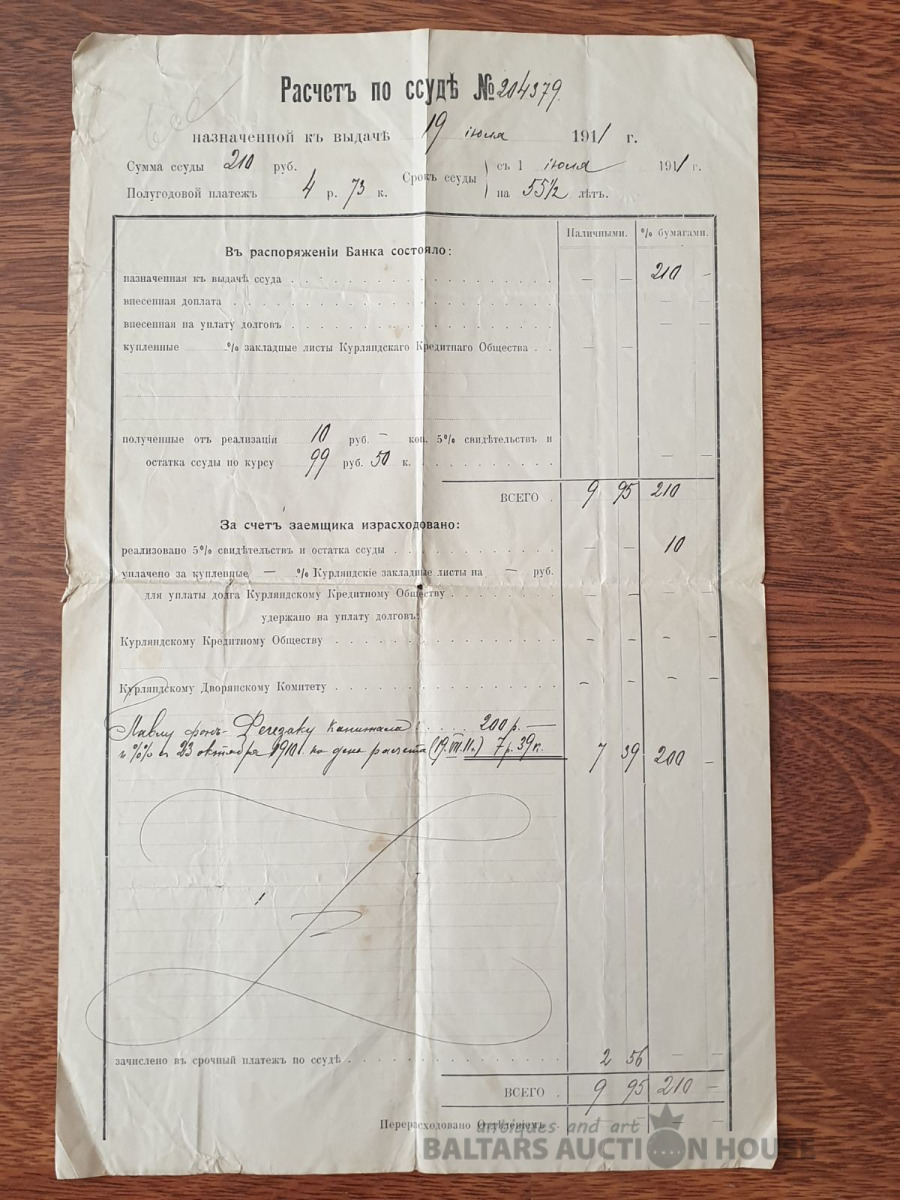 Расчетъ по ссудѣ № 204379.
назначенной къ выдачѣ 19 іюля 1911 г.
Сумма ссуды 210 руб.
Полугодовой платежъ 4 р. 73 к.
Срокъ ссуды
съ 1 іюля 1911 г.
на 55 1/2 лѣтъ.
Наличными. % бумагами.
Въ распоряженіи Банка состояло:
назначенная къ выдачѣ ссуда — — 210 —
внесенная доплата — —
внесенная на уплату долговъ — —
купленные % закладные листы Курляндскаго Кредитнаго Общества — —
полученные отъ реализаціи 10 руб. — коп. 5% свидѣтельствъ и
остатка ссуды по курсу 99 руб. 50 к. — —
ВСЕГО 9 95 210 —
За счетъ заемщика израсходовано:
реализовано 5% свидѣтельствъ и остатка ссуды — — 10
уплачено за купленные — % Курляндскіе закладные листы на — руб.
для уплаты долга Курляндскому Кредитному Обществу — — — —
удержано на уплату долговъ:
Курляндскому Кредитному Обществу — — — —
Курляндскому Дворянскому Комитету — — — —
Павлу фонъ- капитала 200 р. —
и %% съ 23 октября 1910 г. по день расчета (19.VII.11 г.) 7 р. 39 к. 7 39 200 —
зачислено въ срочный платежъ по ссудѣ 2 56 — —
ВСЕГО 9 95 210 —
Перерасходовано Отдѣленіемъ — —
antiques and art
BALTARS AUCTION HOUSE